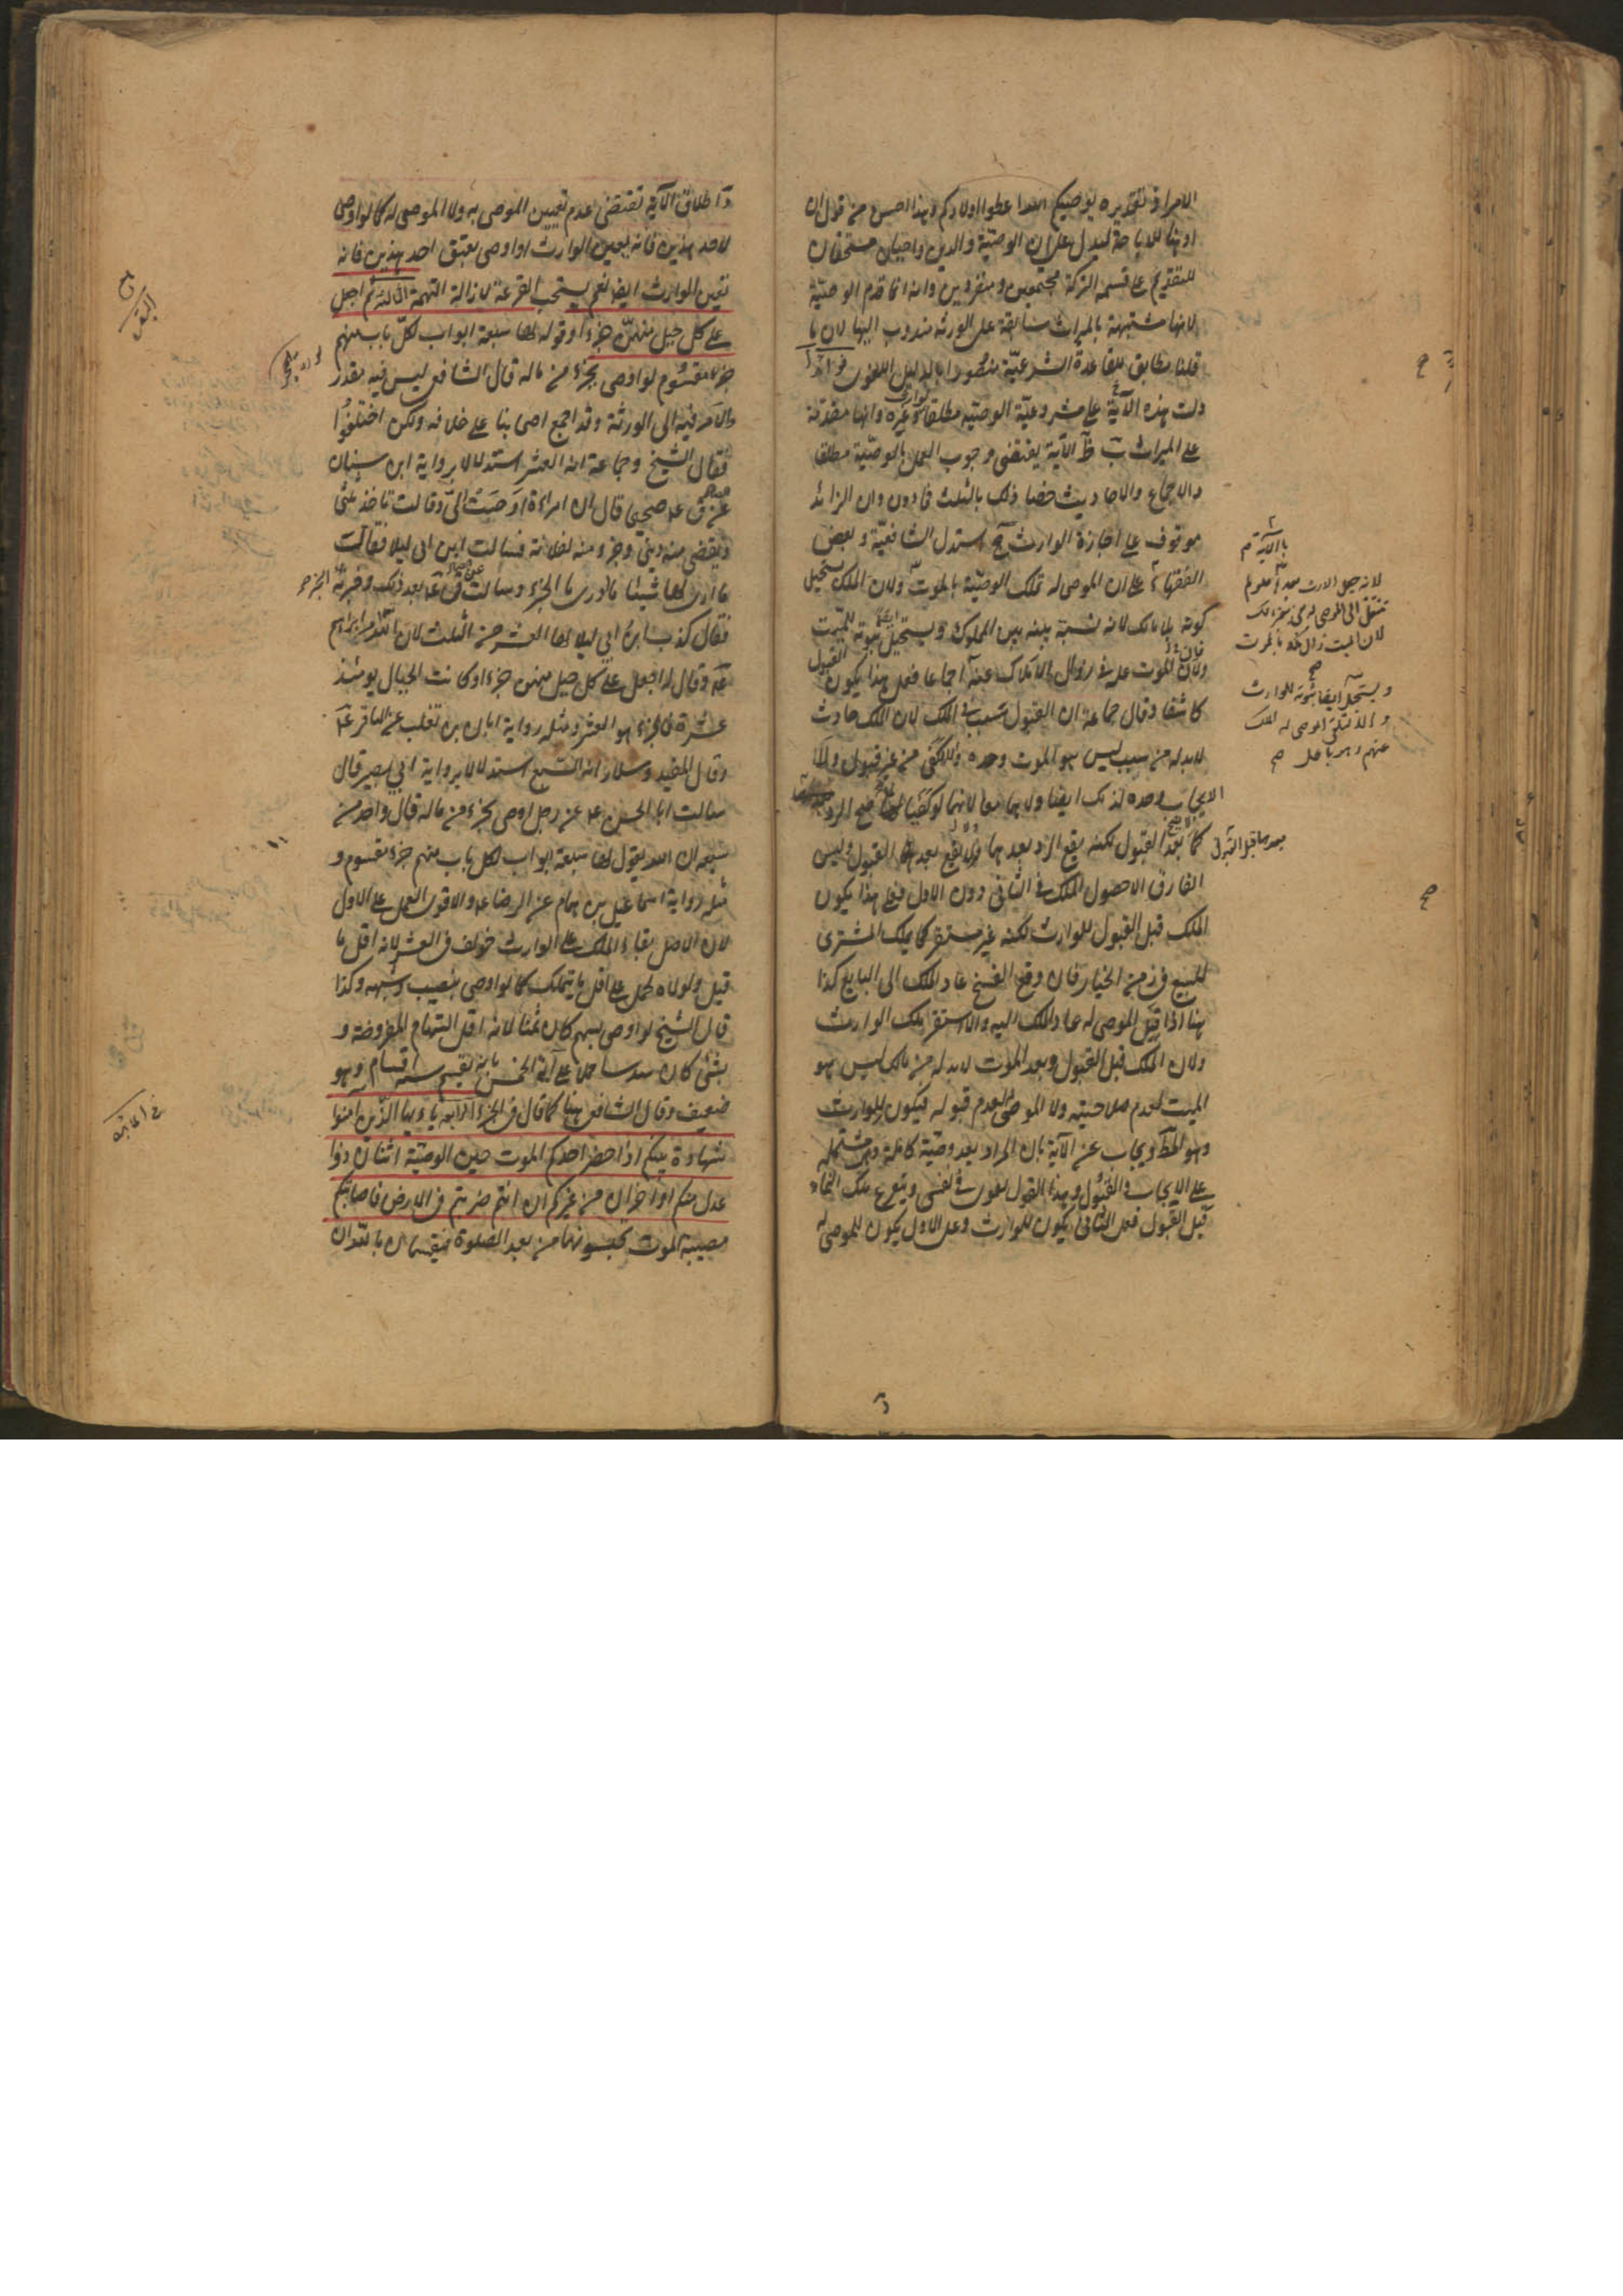 الامر اذ تقديره يوصيكم الله اعطوا اولادكم وهذا احسن من قول ان
او هنا للاباحة ليدل على ان الوصيّة والدين واجبان مستحقان
للتقديم على قسمة التركة مجتمعين ومنفردين وانه انما قدم الوصيّة
لانها مشبهة بالميراث شاقة على الورثة مندوب اليها لان ما
قلنا مطابق للقاعدة الشرعيّة منصورا بالدليل اللغوى فوائد أ
دلت هذه الآية على مشروعيّة الوصيّة مطلقا لوارث وغيره وانها مقدّمة
على الميراث ب ظ الآية يقتضى وجوب العمل بالوصيّة مطلقا
والاجماع والاحاديث خصّا ذلك بالثلث فما دون وان الزائد
موقوف على اجازة الوارث ج استدل الشافعيّة وبعض
الفقهاء على ان الموصى له تملك الوصيّة بالموت ولان الملك يستحيل
كونه بلا مالك لانه نسبة بينه وبين المملوك ويستحيل ايضا ثبوته للميّت
ولان الموت علة فى زوال الاملاك عنه اجماعا فعلى هذا يكون القبول
كاشفا وقال جماعة ان القبول سبب فى الملك لان الملك حادث
لابد له من سبب ليس هو الموت وحده والا لكفى من غير قبول ولا
الايجاب وحده لذلك ايضا ولا هما معا لانهما لو كفيا لما صح الرد
كما بعد القبول لكنه يقع الرد بعدهما ولا يقع بعد القبول وليس
الفارق الا حصول الملك فى الثانى دون الاول فعلى هذا يكون
الملك قبل القبول للوارث لكنه غير مستقر كما يملك المشترى
للمبيع فى زمن الخيار فان وقع الفسخ عاد الملك الى البايع كذا
هنا اذا قبل الموصى له عاد الملك اليه والا استقر ملك الوارث
ولان الملك قبل القبول وبعد الموت لابد له من مالك ليس هو
الميت لعدم صلاحيته ولا الموصى له لعدم قبوله فيكون للوارث
وهو المط ويجاب عن الآية بان المراد بعد وصيّة كاملة وهى مشتملة
على الايجاب والقبول وبهذا القول نقول فى نفسى ويتفرع ملك النماء
قبل القبول فعلى الثانى يكون للوارث وعلى الاول يكون للموصى له
لانه جعل الارث بعدها فلو لم
تنتقل الى الموصى له
لان الميت زال ملكه بالموت
ويستحيل ايضا ثبوته للوارث
والا لتلقى الموصى له الملك
عنهم وهو باطل صح
د اطلاق الآية تقتضى عدم تعيين الموصى به ولا الموصى له كما لو اوصى
لاحد هذين فانه يعين الوارث او اوصى بعتق احد هذين فانه
يعين الوارث ايضا نعم يستحب القرعة لازالة التهمة الثالثة ثم اجعل
على كل جبل منهنّ جزءا وقوله لها سبعة ابواب لكل باب منهم
جزء مقسوم لو اوصى بجزء من ماله قال الشافعى ليس فيه مقدر
والامر فيه الى الورثة وقد اجمع اصحابنا على خلافه ولكن اختلفوا
فقال الشيخ وجماعة انه العشر استدلالا برواية ابن سنان
عن صحيحى قال ان امراة اوصت الىّ وقالت تاخذ ثلثى
ويقضى منه دينى وجزء منه لفلانة فسالت ابن ابى ليلا فقالت
ما ارى لها شيئا ما ادرى ما الجزء وسالت ق ع بعد ذلك وخبرته
فقال كذب ابن ابى ليلا لها العشر من الثلث لان الله امر ابراهيم
ع وقال له اجعل على كل جبل منهن جزءا وكانت الجبال يومئذ
عشرة فالجزء هو العشر ومثله رواية ابان بن تغلب عن الباقر ع
وقال المفيد وسلار انه السبع استدلالا برواية ابى بصير قال
سالت ابا الحسن ع عن رجل اوصى بجزء من ماله قال واحد من
سبعة ان الله يقول لها سبعة ابواب لكل باب منهم جزء مقسوم و
مثله رواية اسماعيل بن همام عن الرضا ع والاقوى العمل على الاول
لان الاصل بقاء الملك على الوارث خولف فى العشر لانه اقل ما
قيل ولولاه لحمل على اقل ما يتملك كما لو اوصى بنصيب وشبهه وكذا
قال الشيخ لو اوصى بسهم كان ثمنا لانه اقل السهام المفروضة و
بشئ كان سدسا حملا على آية الخمس بانه تقسيم ستة اقسام وهو
ضعيف وقال الشافعى هنا كما قال فى الجزء الرابعة يا ايها الذين امنوا
شهادة بينكم اذا حضر احدكم الموت حين الوصيّة اثنان ذوا
عدل منكم او آخران من غيركم ان انتم ضربتم فى الارض فاصابتكم
مصيبة الموت تحبسونهما من بعد الصلوة فيقسمان بالله ان